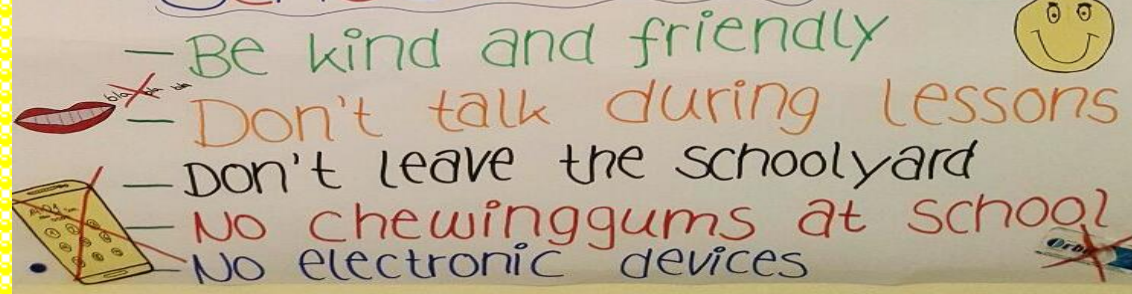 – Be kind and friendly
bla bla bla
– Don't talk during lessons
– Don't leave the schoolyard
– No chewinggums at school
– No electronic devices